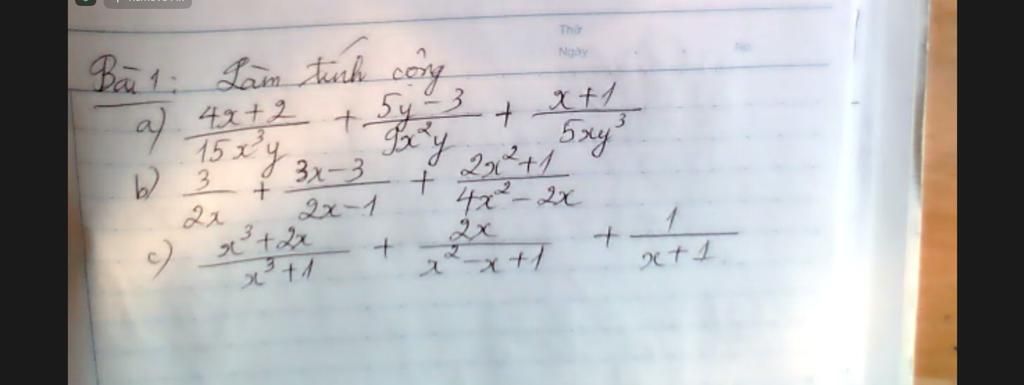 Thứ
Ngày No.
Bài 1: Làm tính cộng
a) \frac{4x+2}{15x^3y} + \frac{5y-3}{9x^2y} + \frac{x+1}{5xy^3}
b) \frac{3}{2x} + \frac{3x-3}{2x-1} + \frac{2x^2+1}{4x^2-2x}
c) \frac{x^3+2x}{x^3+1} + \frac{2x}{x^2-x+1} + \frac{1}{x+1}